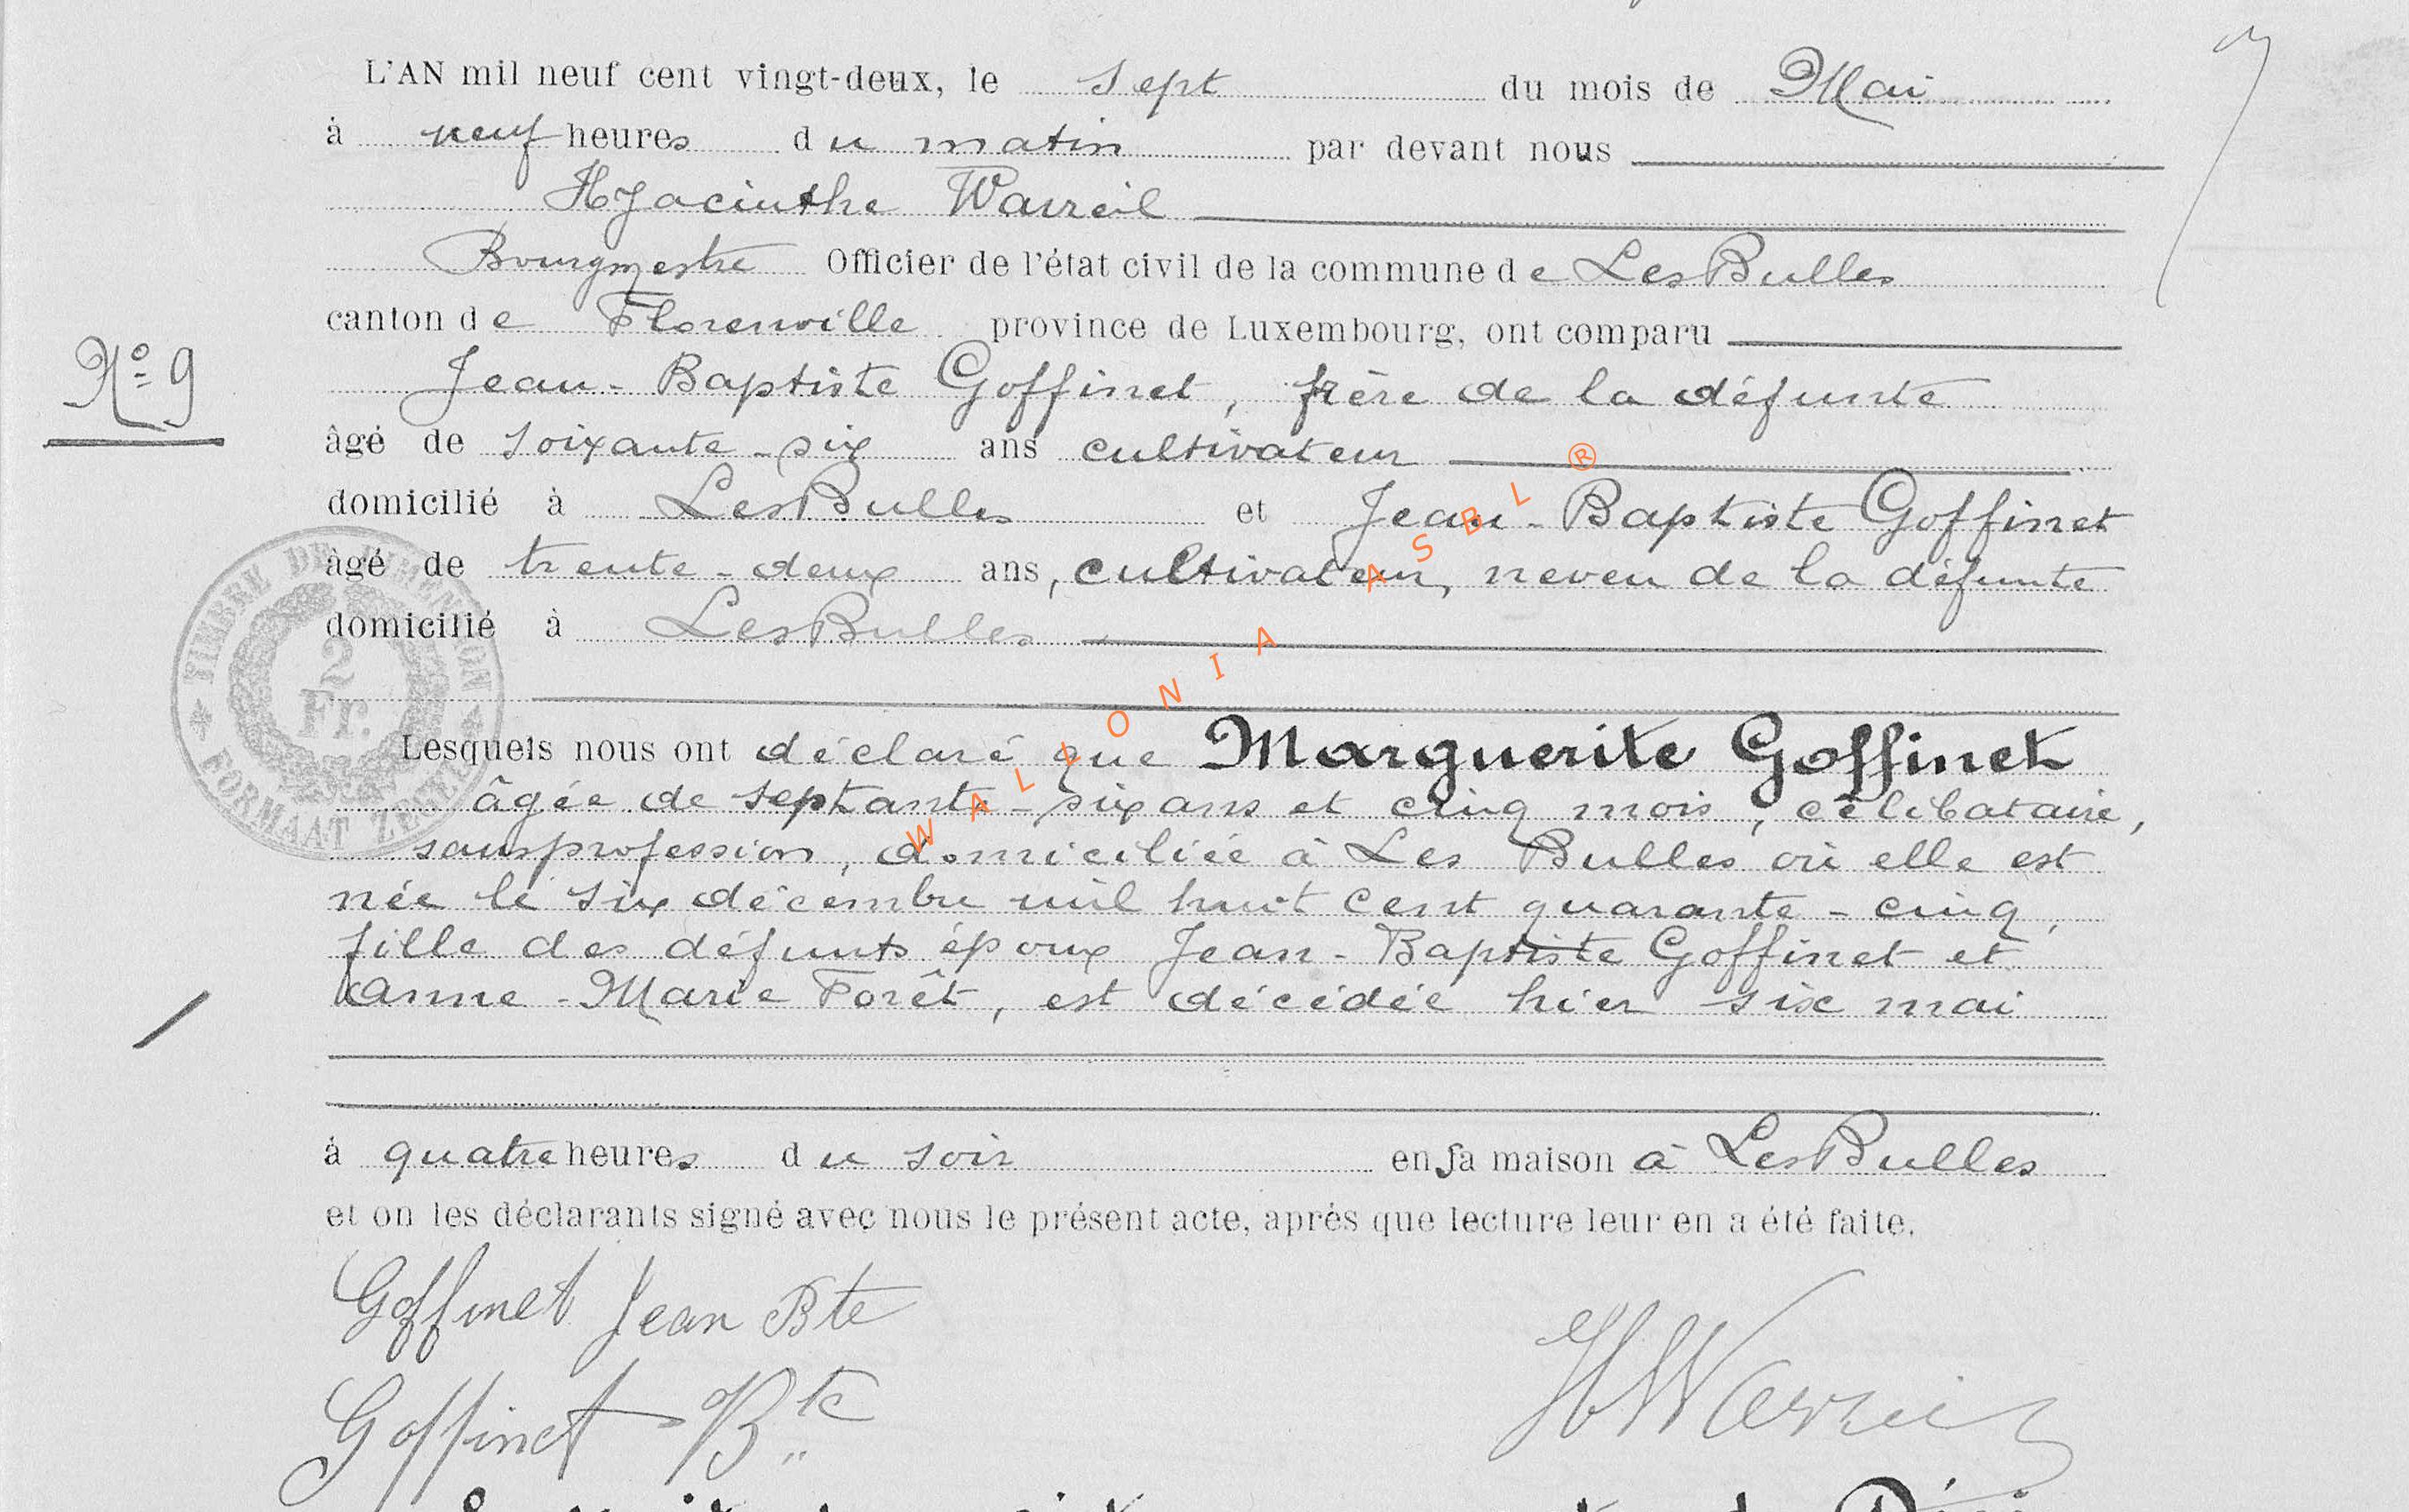 L'AN mil neuf cent vingt-deux, le sept du mois de Mai
à neuf heures du matin par devant nous
Hyacinthe Warreil
Bourgmestre Officier de l'état civil de la commune de Les Bulles
canton de Florenville province de Luxembourg, ont comparu
N° 9
Jean-Baptiste Goffinet, frère de la défunte
âgé de soixante-six ans cultivateur
domicilié à Les Bulles et Jean-Baptiste Goffinet
âgé de trente-deux ans, cultivateur, neveu de la défunte
domicilié à Les Bulles
TIMBRE DE DIMENSION
2
Fr.
FORMAAT ZEGEL
Lesquels nous ont déclaré que Marguerite Goffinet
âgée de septante-six ans et cinq mois, célibataire,
sans profession, domiciliée à Les Bulles où elle est
née le six décembre mil huit cent quarante-cinq,
fille des défunts époux Jean-Baptiste Goffinet et
Anne-Marie Forêt, est décédée hier six mai
à quatre heures du soir en sa maison à Les Bulles
et on les déclarants signé avec nous le présent acte, après que lecture leur en a été faite.
Goffinet Jean Bte
Goffinet Bte
WALLONIA ASBL ®